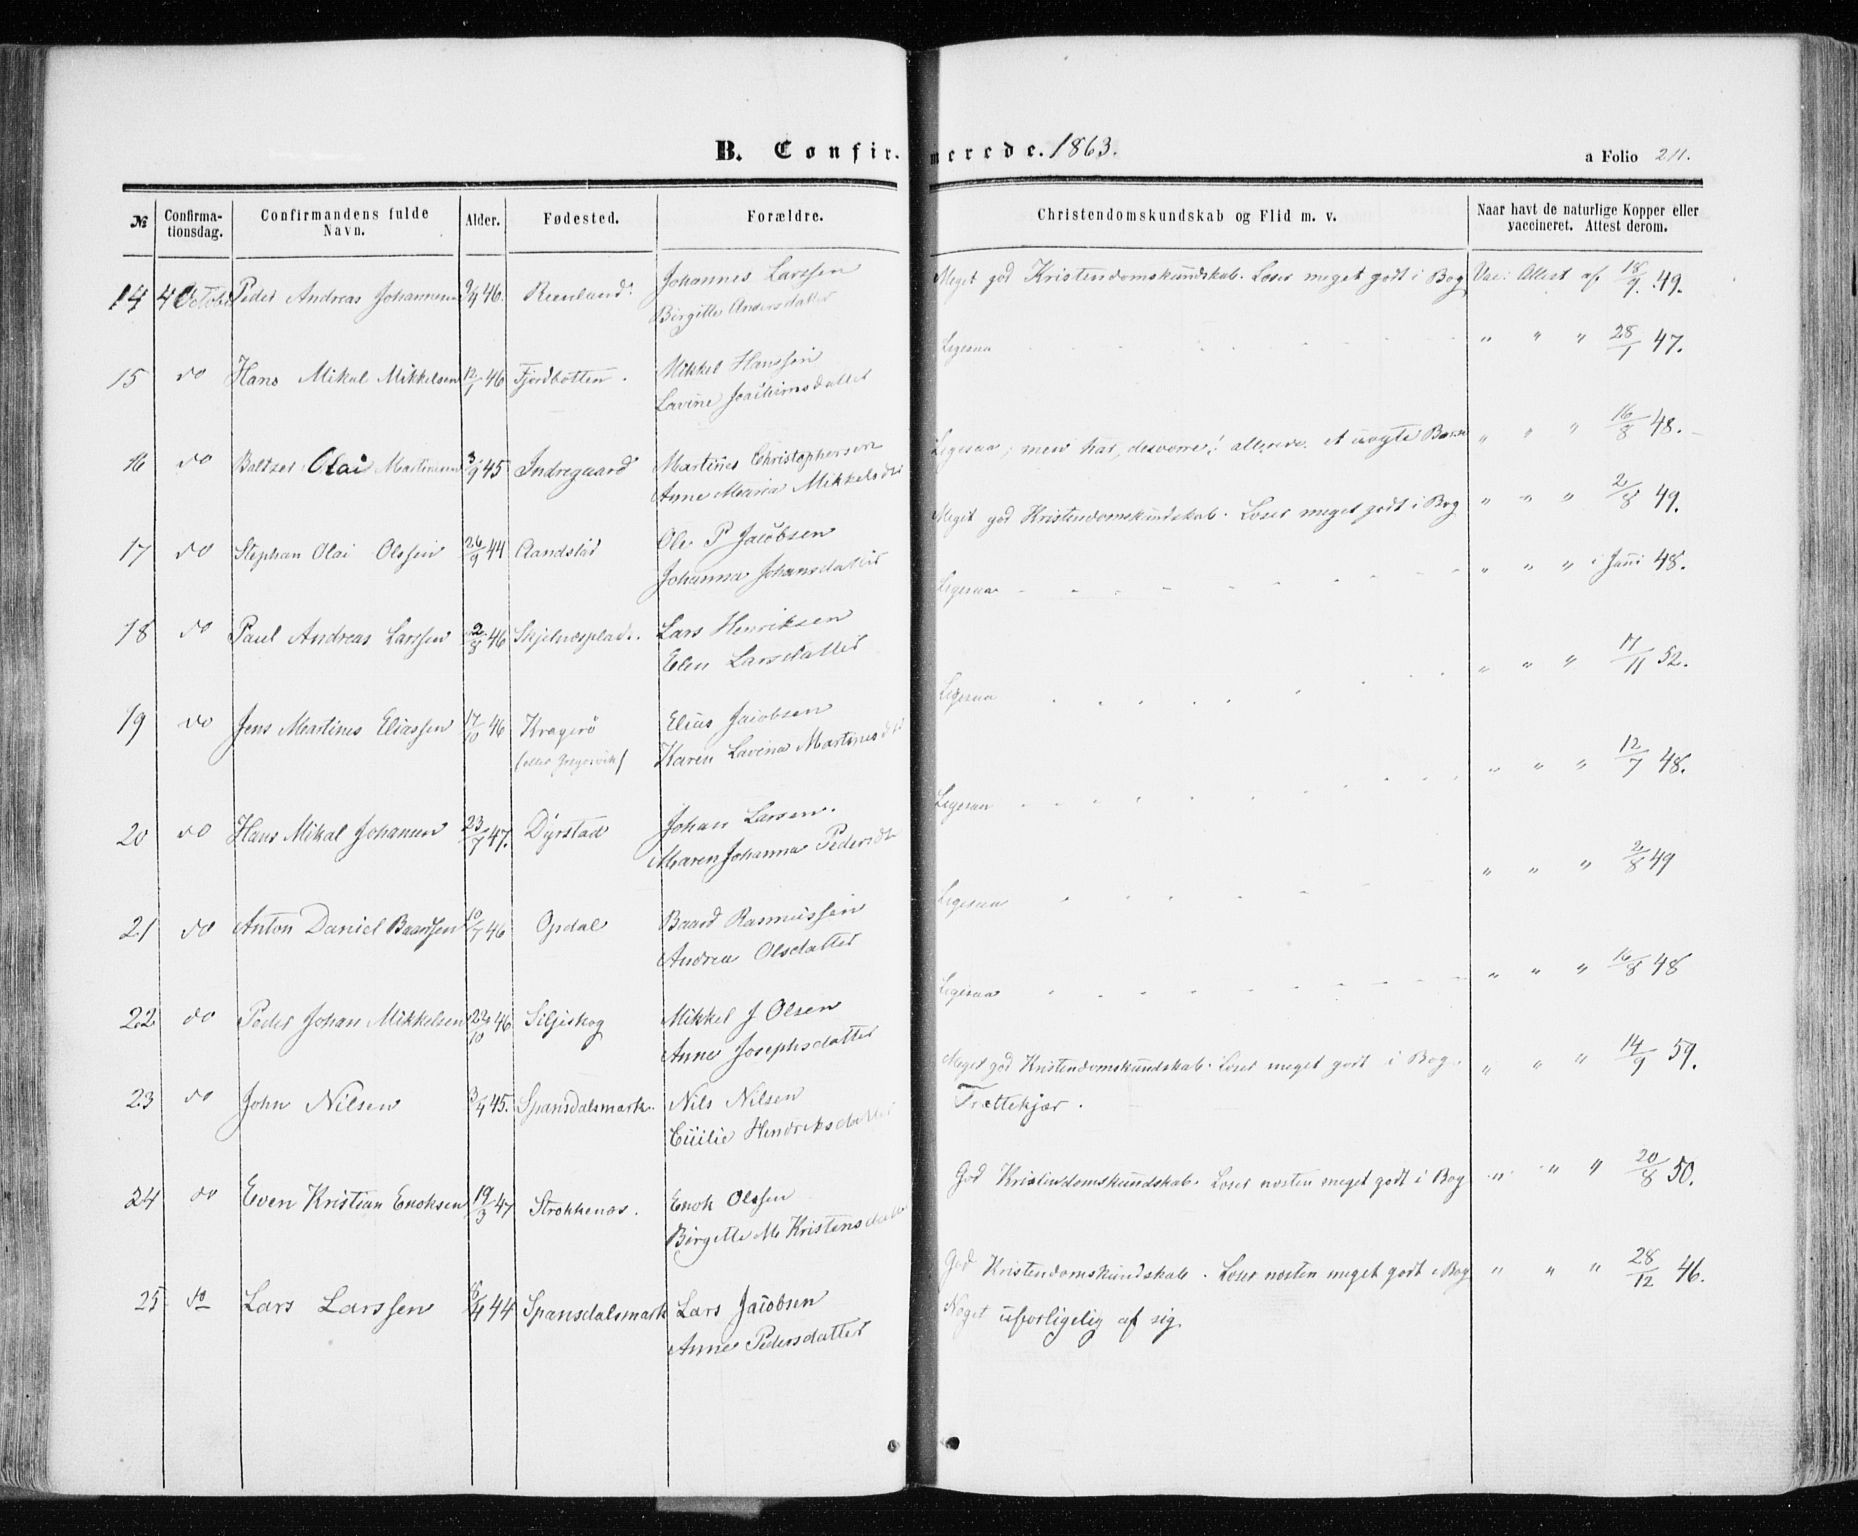 B. Confirmerede. 1863.
a Folio 211.
№ Confirmationsdag. Confirmandens fulde Navn. Alder. Fødested. Forældre. Christendomskundskab og Flid m. v. Naar havt de naturlige Kopper eller vaccineret. Attest derom.
14 4 October Peder Andreas Johannesen 9/4 46. Reenland. Johannes Larssen Meget god Kristendomskundskab. Læser meget godt i Bog Vac: Attest af 18/9 49.
Birgitte Andersdatter
15 do Hans Mikal Mikkelsen 12/1 46 Fjordbotten. Mikkel Hanssen Ligesaa " " " 28/1 47.
Lavine Joachimsdatter
16 do Baltzer Olai Martinussen 3/9 45 Indregaard Martines Christophersen Ligesaa; men har, desværre! allerede et uægte Barn " " " 16/8 48.
Anne Maria Mikkelsdtr
17 do Stephan Olai Olssen 26/9 44 Aandstad Ole P Jacobsen Meget god Kristendomskundskab. Læser meget godt i Bog " " " 2/8 49.
Johanna Johansdatter
18 do Paul Andreas Larssen 2/8 46 Skjelnesplads. Lars Henriksen Ligesaa " " " i Juni 48.
Elen Larsdatter
19 do Jens Martines Eliassen 17/10 46 Kragerö Elias Jacobsen Ligesaa " " " 17/11 52.
(eller Gregusvik) Karen Lavina Martinesdtr
20 do Hans Mikal Johansen 23/7 47. Dyrstad Johan Larsen. Ligesaa " " " 12/7 48.
Maren Johanna Pedersdtr
21 do Anton Daniel Baardsen 10/7 46 Opdal Baard Rasmussen Ligesaa " " " 2/8 49
Andrea Olsdatter
22 do Peder Johan Mikkelsen 22/10 46 Siljeskog Mikkel J Olsen Ligesaa " " " 16/8 48
Anne Josephsdatter
23 do John Nilsen 3/4 45. Spansdalsmark. Nils Nilsen Meget god Kristendomskundskab. Læser meget godt i Bog. " " " 14/9 59.
Cicilie Hendriksdatter Trættekjær.
24 do Even Kristian Enoksen 19/3 47 Strokkenæs. Enok Olssen God Kristendomskundskab. Læser næsten meget godt i Bog " " " 20/8 50.
Birgitte M Kristensdatter
25 do Lars Larssen 6/4 44 Spansdalsmark Lars Jacobsen God Kristendomskundskab. Læser næsten meget godt i Bog " " " 28/12 46.
Anne Pedersdatter Noget uforligelig af sig